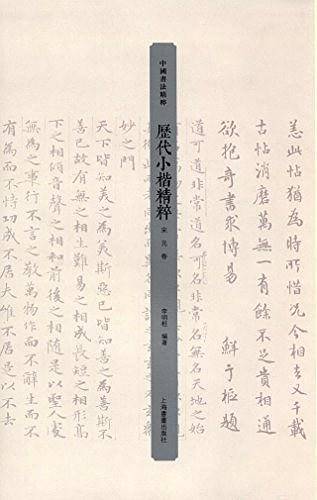 恙此帖猶為時所惜况今相去又千載
古帖消磨萬無一有餘不足貴相通
欲抱奇書求博易 鮮于樞題
道可道非常道名可名非常名無名天地之始
中國書法精粹
歷代小楷精粹
宋元卷
李明 編著
上海書畫出版社
妙之門
天下皆知美之為美斯惡已皆知善之為善斯不
善已故有無之相生難易之相成長短之相形高
下之相傾音聲之相和前後之相隨是以聖人處
無為之事行不言之教萬物作而不辭生而不
有為而不恃功成不居夫惟不居是以不去